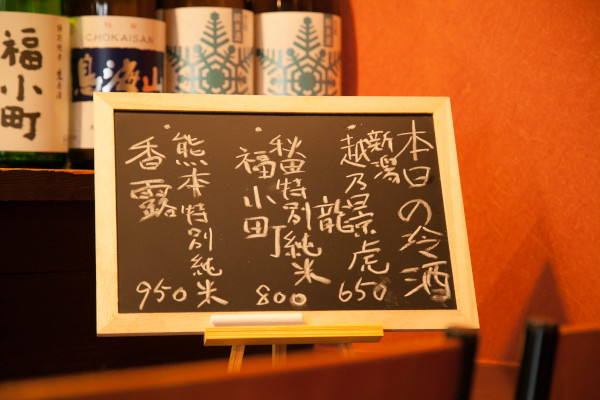 本日の冷酒
新潟
越乃景虎
龍
650
秋田特別純米
福小町
800
熊本特別純米
香露
950
福小町
CHOKAISAN
鳥海山